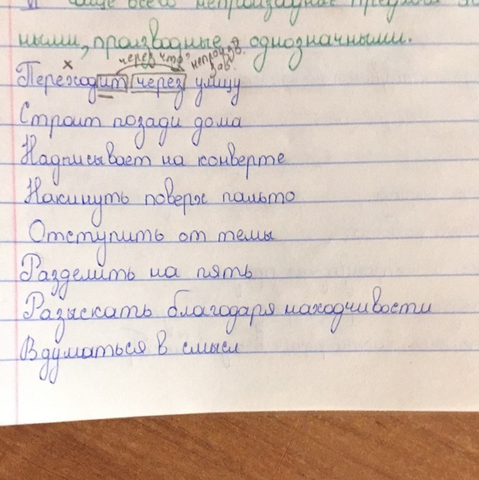 чаще всего непроизводные предлоги
ными, производные однозначными.
х через что? непроизв.
зав.
Переходит через улицу
Строит позади дома
Надписывает на конверте
Накинуть поверх пальто
Отступить от темы
Разделить на пять
Разыскать благодаря находчивости
Вдуматься в смысл